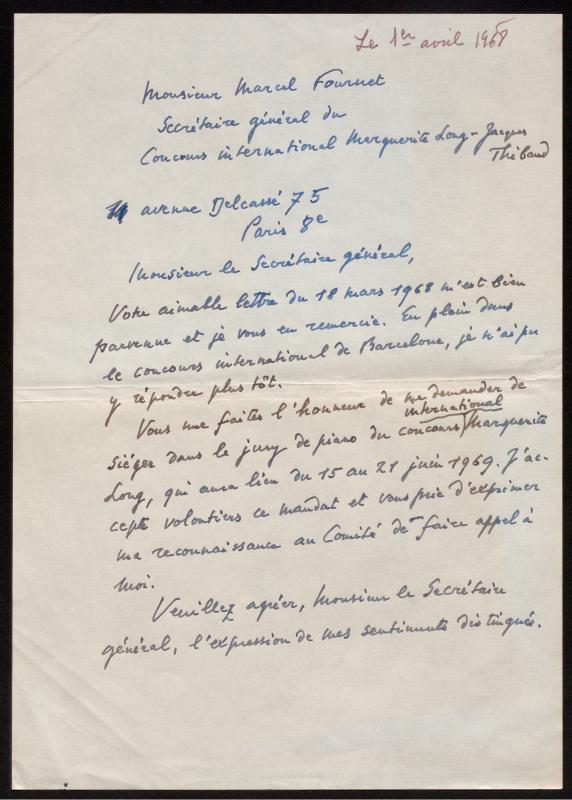 Le 1er avril 1968
Monsieur Marcel Fournet
Secrétaire général du
Concours international Marguerite Long - Jacques
Thibaud
11 avenue Delcassé 75
Paris 8e
Monsieur le Secrétaire général,
Votre aimable lettre du 18 mars 1968 m'est bien
parvenue et je vous en remercie. En plein dans
le concours international de Barcelone, je n'ai pu
y répondre plus tôt.
Vous me faites l'honneur de me demander de
siéger dans le jury de piano du concours international Marguerite
Long, qui aura lieu du 15 au 21 juin 1969. J'ac-
cepte volontiers ce mandat et vous prie d'exprimer
ma reconnaissance au Comité de faire appel à
moi.
Veuillez agréer, Monsieur le Secrétaire
général, l'expression de mes sentiments distingués.